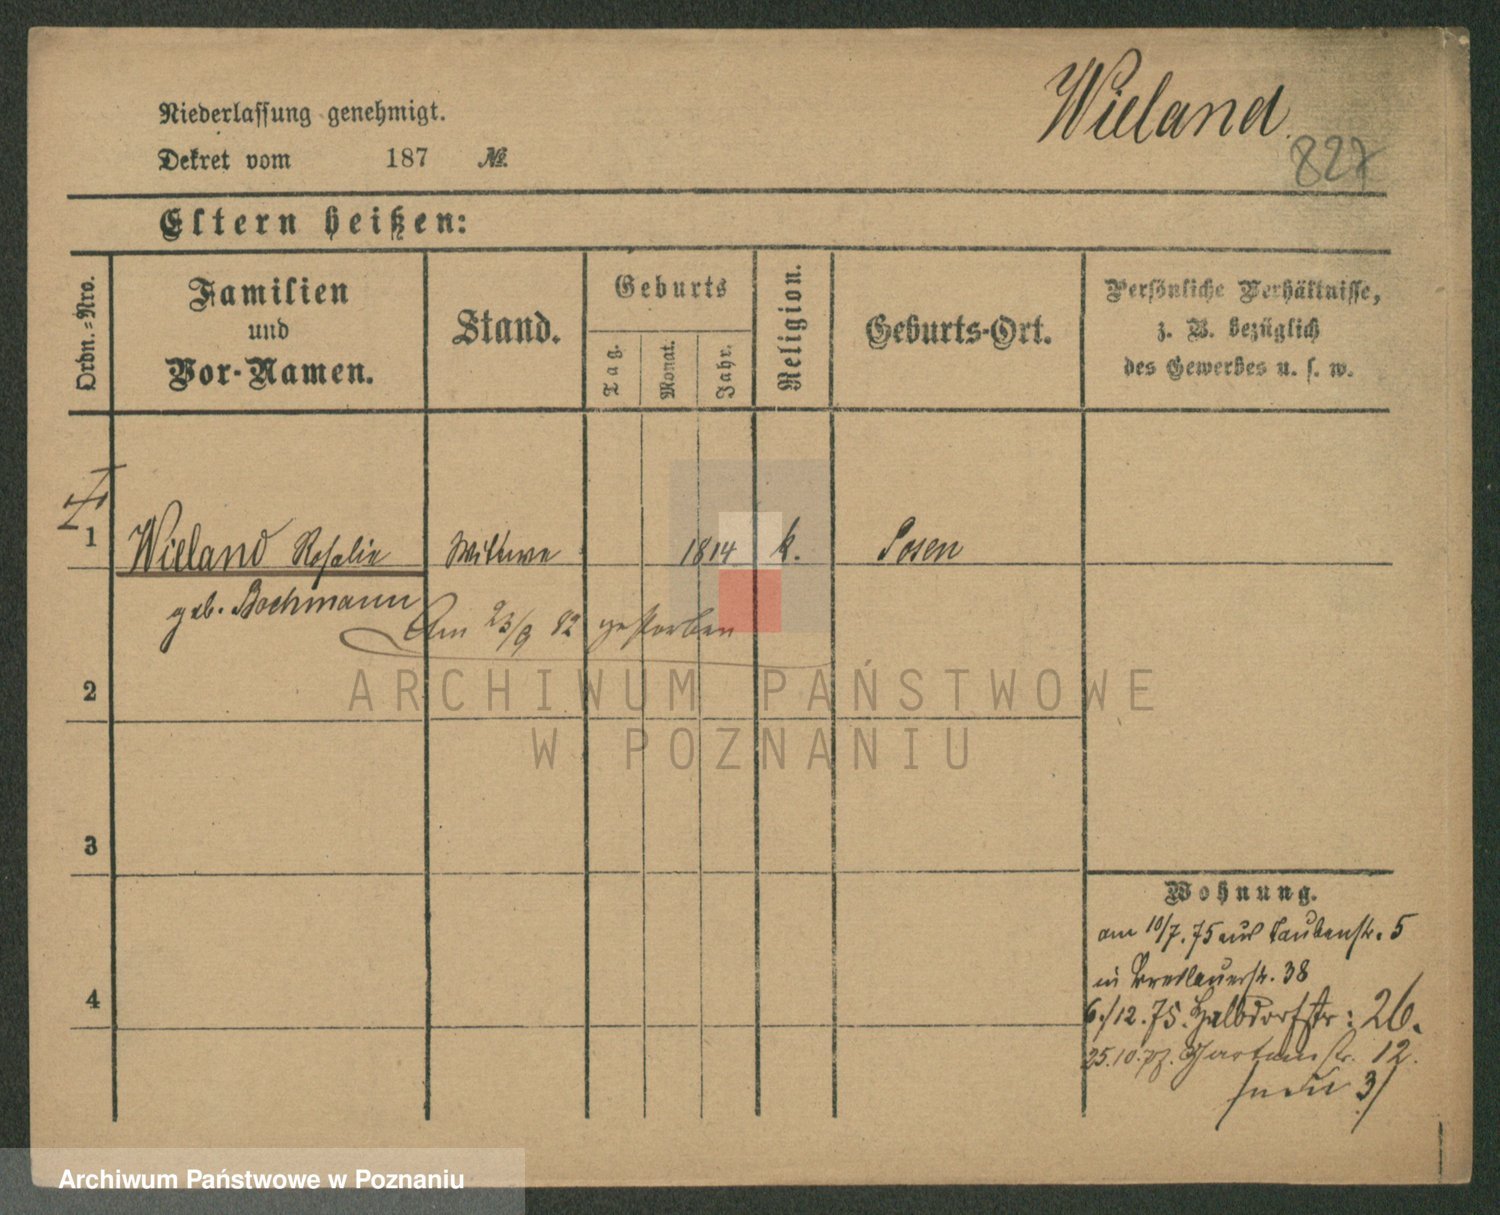 Wieland
827
Niederlassung genehmigt.
Dekret vom 187 №.
Eltern heißen:
Ordn.=Nro.
Familien
und
Vor-Namen.
Stand.
Geburts
Tag.
Monat.
Jahr.
Religion.
Geburts-Ort.
Persönliche Verhältnisse,
z. B. bezüglich
des Gewerbes u. s. w.
1 Wieland Rosalie Wittwe 1814 k. Posen
geb. Bochmann
Am 23/9 82 gestorben
ARCHIWUM PAŃSTWOWE
W POZNANIU
2
3
4
Wohnung.
am 10/7. 75 aus Taubenstr. 5
in Breslauerstr. 38
6./12.75. Halbdorfstr: 26.
25.10. Gartenstr. 12.
(neu 3)
Archiwum Państwowe w Poznaniu